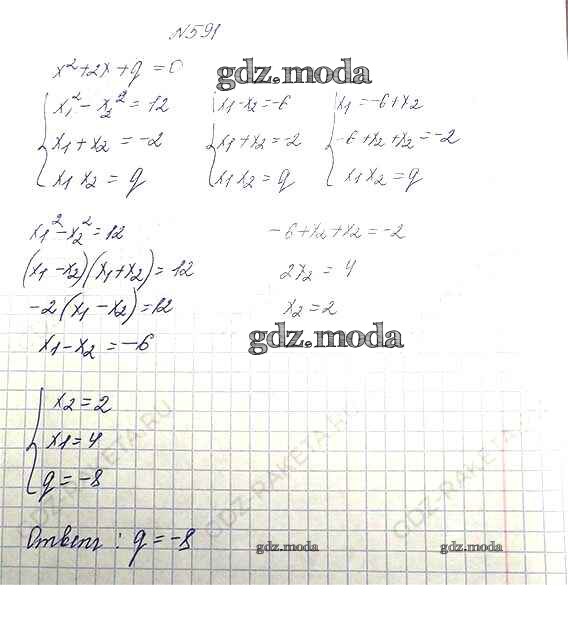 №591
x²+2x+q=0
gdz.moda
{ x₁²-x₂²=12 { x₁-x₂=-6 { x₁=-6+x₂
x₁+x₂=-2 x₁+x₂=-2 -6+x₂+x₂=-2
x₁x₂=q x₁x₂=q x₁x₂=q
x₁²-x₂²=12
(x₁-x₂)(x₁+x₂)=12
-2(x₁-x₂)=12
x₁-x₂=-6
-6+x₂+x₂=-2
2x₂=4
x₂=2
gdz.moda
{ x₂=2
x₁=4
q=-8
GDZ-RAKETA.RU
GDZ-RAKETA.RU
GDZ-RAKETA.RU
Ответ: q=-8
gdz.moda
gdz.moda